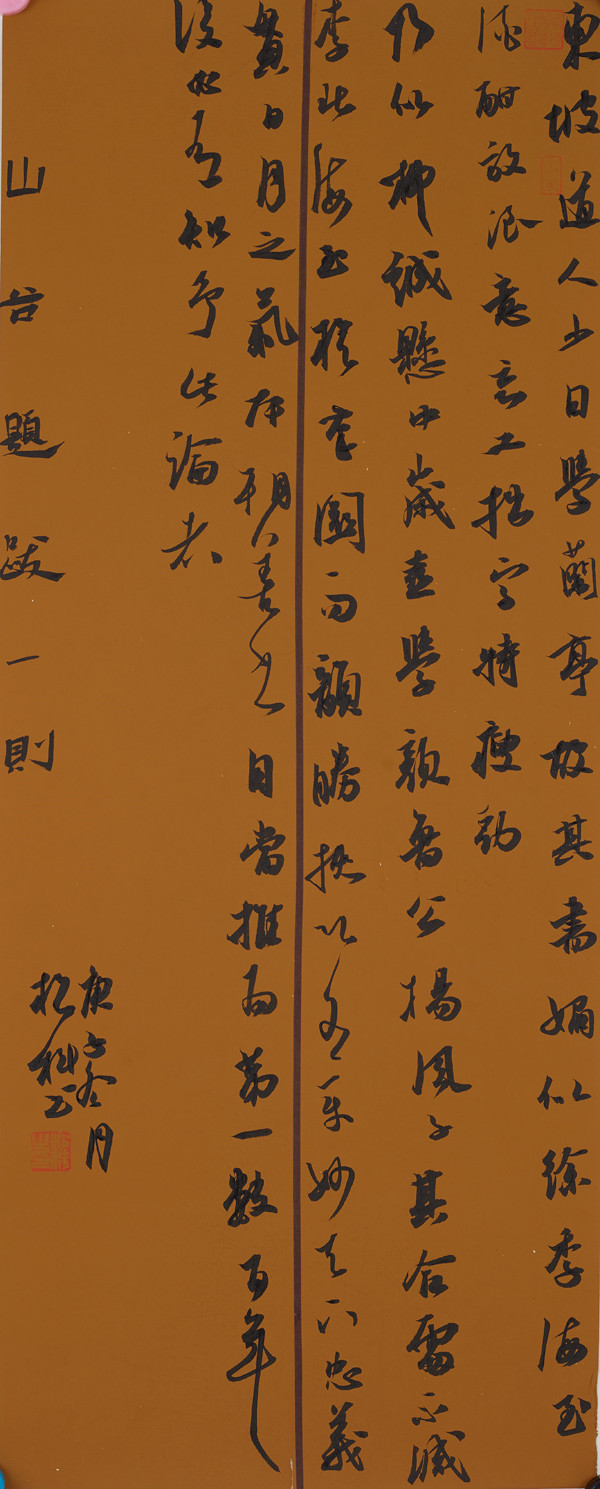 東坡道人少日學蘭亭故其書媚似徐季海至
酒酣放浪意忘工拙字特瘦勁
乃似柳誠懸中歲喜學顏魯公揚風子其合處不減
李北海至於筆圜而韻勝挾以文章妙天下忠義
貫日月之氣本朝善書自當推為第一數百年
後必有知予此論者
山谷題跋一則
庚子冬月